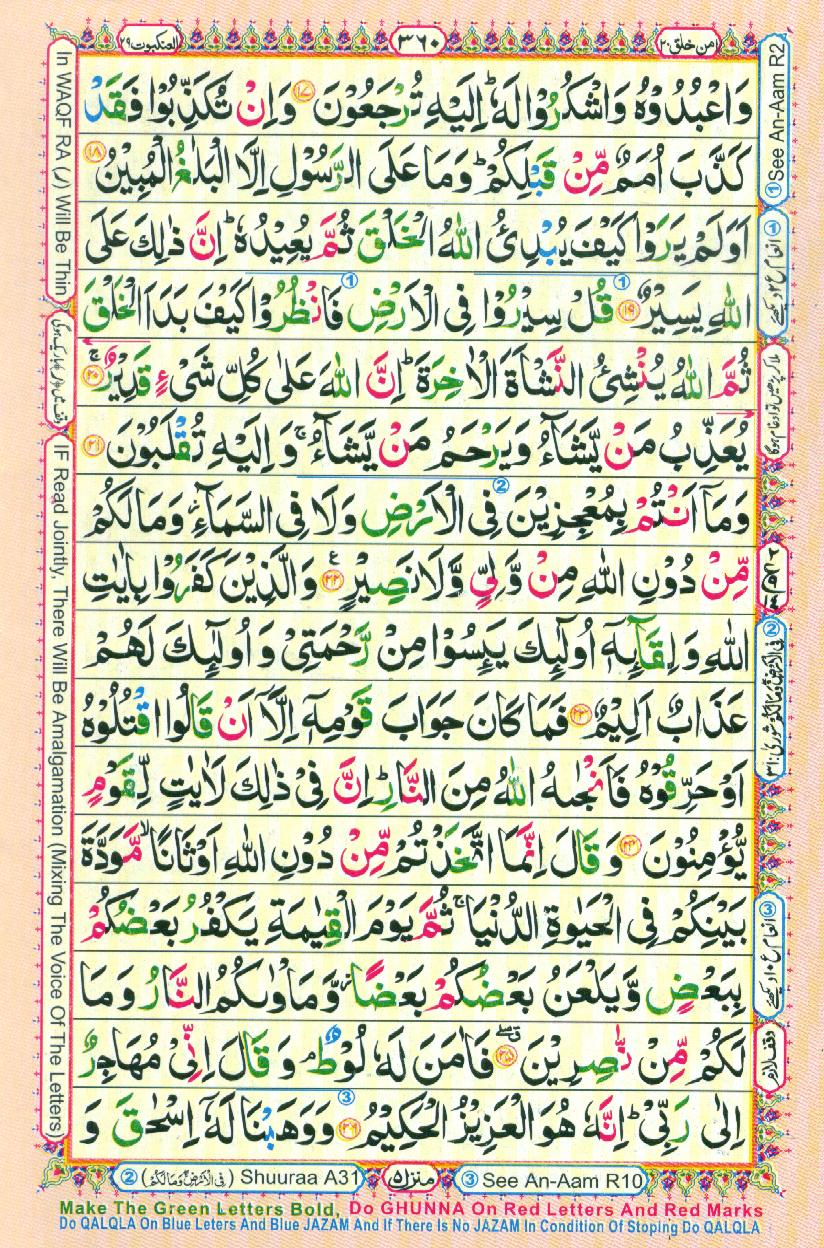 العنكبوت ٢٩
٣٦٠
امن خلق ٢٠
وَاعْبُدُوْهُ وَاشْكُرُوْا لَهٗ ؕ اِلَيْهِ تُرْجَعُوْنَ ﴿۱۷﴾ وَاِنْ تُكَذِّبُوْا فَقَدْ
كَذَّبَ اُمَمٌ مِّنْ قَبْلِكُمْ ؕ وَمَا عَلَى الرَّسُوْلِ اِلَّا الْبَلٰغُ الْمُبِيْنُ ﴿۱۸﴾
اَوَلَمْ يَرَوْا كَيْفَ يُبْدِئُ اللّٰهُ الْخَلْقَ ثُمَّ يُعِيْدُهٗ ؕ اِنَّ ذٰلِكَ عَلَى
اللّٰهِ يَسِيْرٌ ﴿۱۹﴾ قُلْ سِيْرُوْا فِى الْاَرْضِ فَانْظُرُوْا كَيْفَ بَدَاَ الْخَلْقَ
ثُمَّ اللّٰهُ يُنْشِئُ النَّشْاَةَ الْاٰخِرَةَ ؕ اِنَّ اللّٰهَ عَلٰى كُلِّ شَىْءٍ قَدِيْرٌ ۚ ﴿۲۰﴾
يُعَذِّبُ مَنْ يَّشَآءُ وَيَرْحَمُ مَنْ يَّشَآءُ ۚ وَاِلَيْهِ تُقْلَبُوْنَ ﴿۲۱﴾
وَمَآ اَنْتُمْ بِمُعْجِزِيْنَ فِى الْاَرْضِ وَلَا فِى السَّمَآءِ ؗ وَمَا لَكُمْ
مِّنْ دُوْنِ اللّٰهِ مِنْ وَّلِىٍّ وَّلَا نَصِيْرٍ ﴿۲۲﴾ وَالَّذِيْنَ كَفَرُوْا بِاٰيٰتِ
اللّٰهِ وَلِقَآئِهٖۤ اُولٰٓئِكَ يَئِسُوْا مِنْ رَّحْمَتِىْ وَاُولٰٓئِكَ لَهُمْ
عَذَابٌ اَلِيْمٌ ﴿۲۳﴾ فَمَا كَانَ جَوَابَ قَوْمِهٖۤ اِلَّاۤ اَنْ قَالُوا اقْتُلُوْهُ
اَوْ حَرِّقُوْهُ فَاَنْجٰىهُ اللّٰهُ مِنَ النَّارِ ؕ اِنَّ فِىْ ذٰلِكَ لَاٰيٰتٍ لِّقَوْمٍ
يُّؤْمِنُوْنَ ﴿۲۴﴾ وَقَالَ اِنَّمَا اتَّخَذْتُمْ مِّنْ دُوْنِ اللّٰهِ اَوْثَانًا ۙ مَّوَدَّةَ
بَيْنِكُمْ فِى الْحَيٰوةِ الدُّنْيَا ۚ ثُمَّ يَوْمَ الْقِيٰمَةِ يَكْفُرُ بَعْضُكُمْ
بِبَعْضٍ وَّيَلْعَنُ بَعْضُكُمْ بَعْضًا ؗ وَّمَاْوٰىكُمُ النَّارُ وَمَا
لَكُمْ مِّنْ نّٰصِرِيْنَ ﴿۲۵﴾ فَاٰمَنَ لَهٗ لُوْطٌ ۘ وَقَالَ اِنِّىْ مُهَاجِرٌ
اِلٰى رَبِّىْ ؕ اِنَّهٗ هُوَ الْعَزِيْزُ الْحَكِيْمُ ﴿۲۶﴾ وَوَهَبْنَا لَهٗۤ اِسْحٰقَ وَ
① See An-Aam R2
وقف لازم
In WAQF RA (ر) Will Be Thin
IF Read Jointly, There Will Be Amalgamation (Mixing The Voice Of The Letters)
② (فِى الْاَرْضِ وَمَا لَكُمْ) Shuuraa A31
منزل ٥
③ See An-Aam R10
Make The Green Letters Bold, Do GHUNNA On Red Letters And Red Marks
Do QALQLA On Blue Leters And Blue JAZAM And If There Is No JAZAM In Condition Of Stoping Do QALQLA